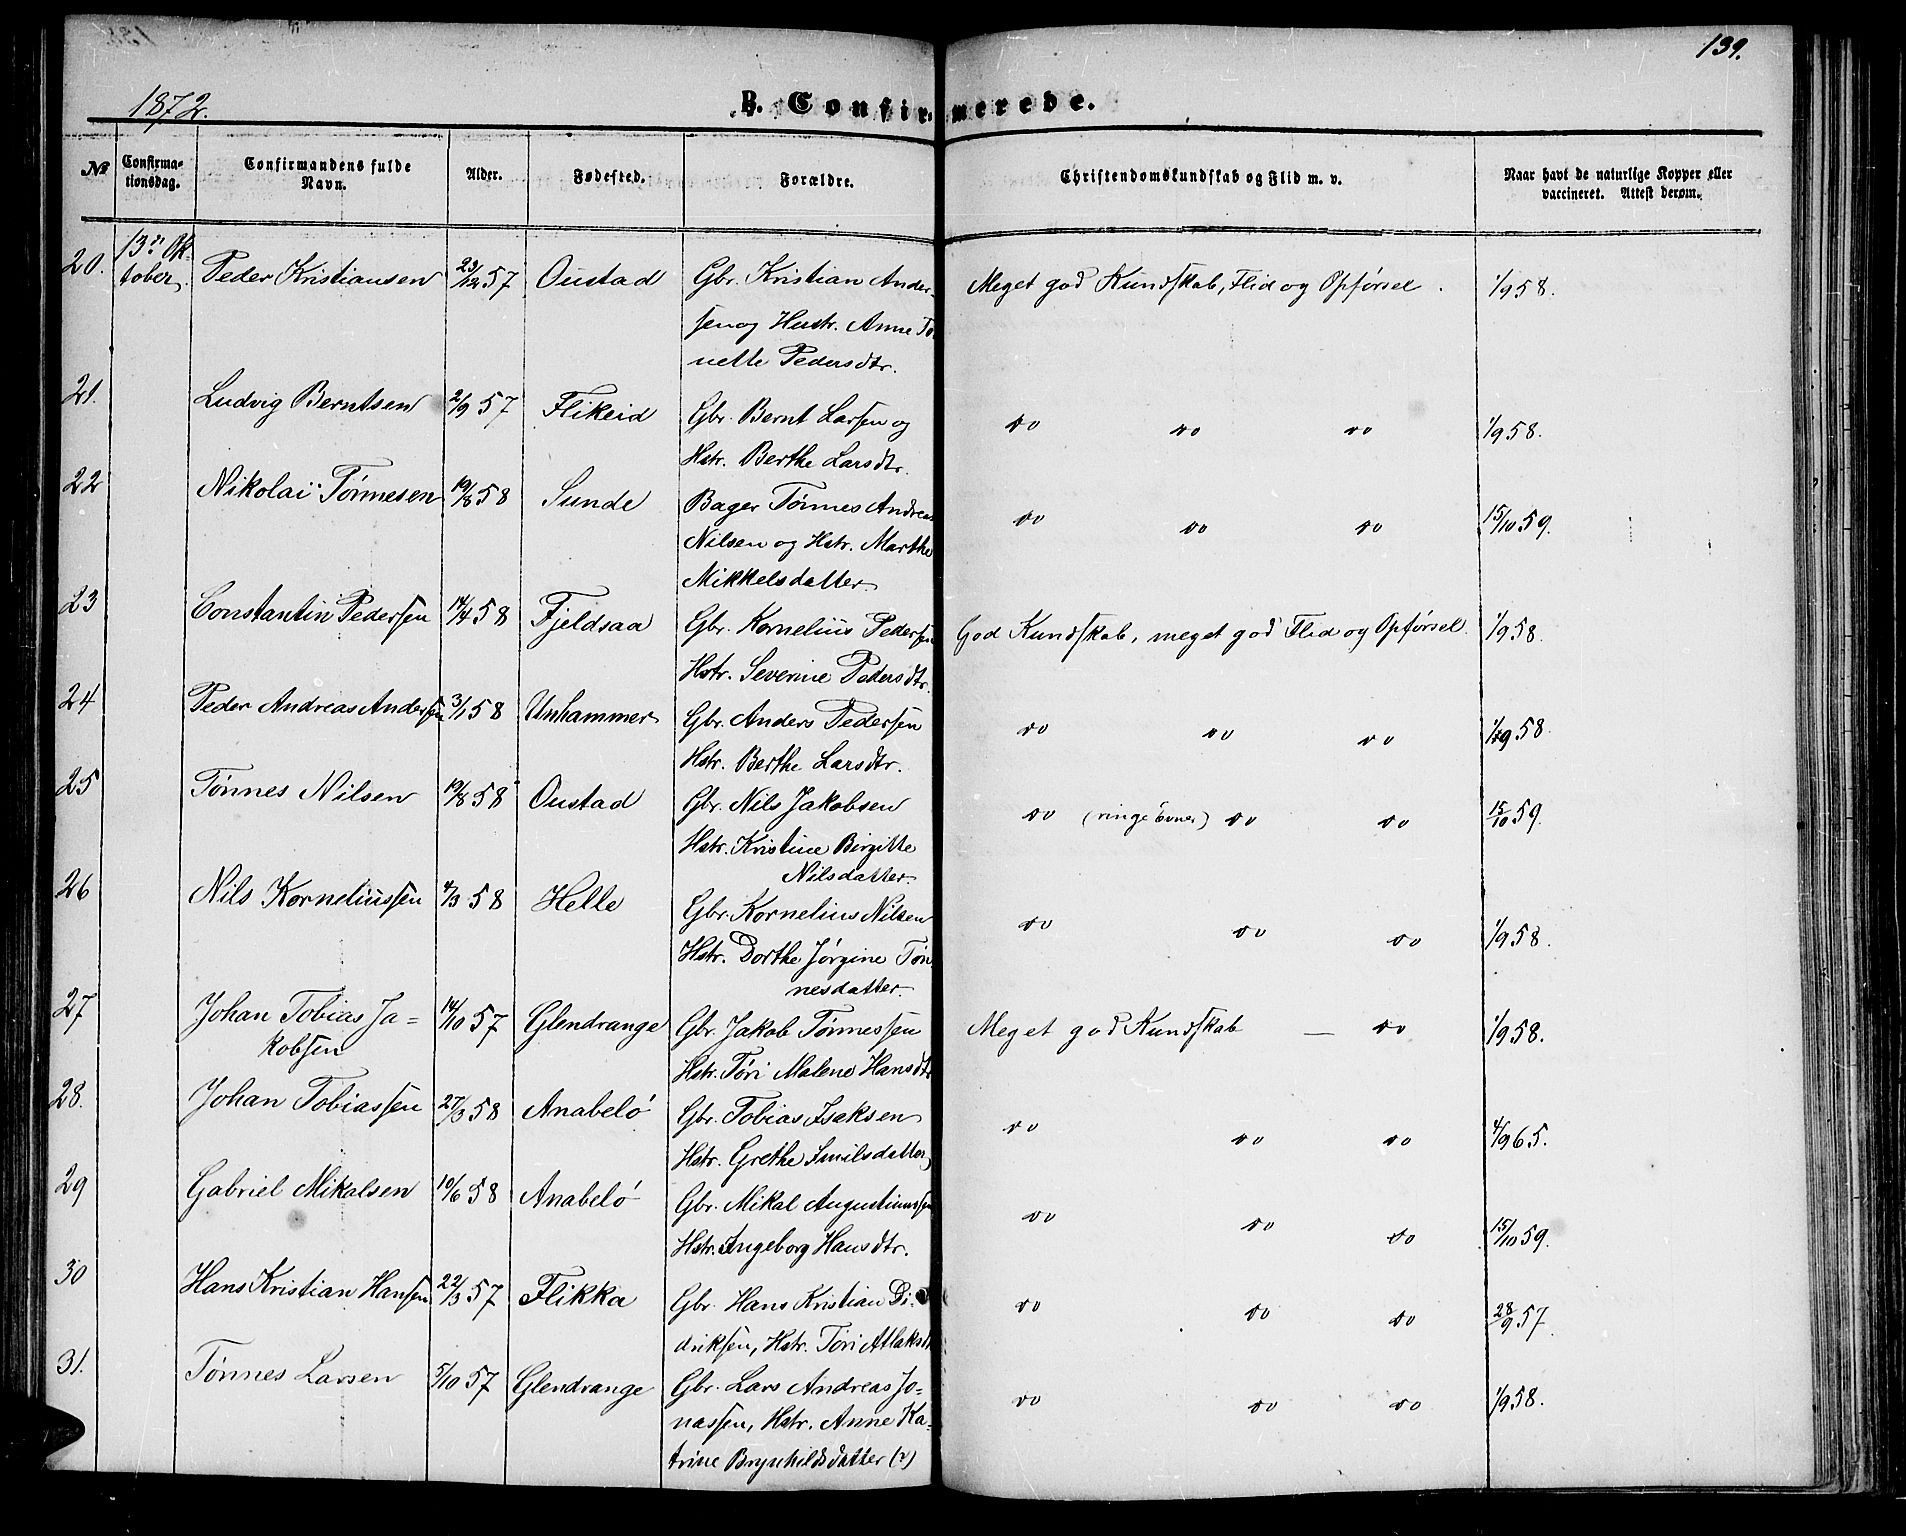 139.
1872.
B. Confirmerede.
№
Confirmationsdag.
Confirmandens fulde Navn.
Alder.
Fødested.
Forældre.
Christendomskundskab og Flid m. v.
Naar havt de naturlige Kopper eller vaccineret. Attest derom.
20. 13de Ok- Peder Kristiansen 23/12 57 Oustad Gbr. Kristian Ander- Meget god Kundskab, Flid og Opførsel. 1/9 58.
tober. sen og Hustr. Anne To
nette Pedersdtr.
21. Ludvig Berntsen 2/9 57 Flikeid Gbr. Bernt Larsen og do do do 1/9 58.
Hstr. Berthe Larsdtr.
22 Nikolai Tønnesen 19/8 58 Sunde Bager Tønnes Andreas do do do 15/10 59.
Nilsen og Hstr. Marthe
Mikkelsdatter
23 Constantin Pedersen 14/4 58 Fjeldsaa Gbr. Kornelius Pedersen God Kundskab, meget god Flid og Opførsel. 1/9 58.
Hstr. Severine Pedersdtr.
24 Peder Andreas Andersen 3/1 58 Unhammer Gbr. Anders Pedersen do do do 1/9 58
Hstr. Berthe Larsdtr.
25 Tønnes Nilsen 19/8 58 Oustad Gbr. Nils Jakobsen do (ringe Evner) do do 15/10 59.
Hstr. Kristine Birgitte
Nilsdatter.
26 Nils Korneliussen 4/3 58 Helle Gbr. Kornelius Nilsen do do do 1/9 58.
Hstr. Dorthe Jørgine Tøn
nesdatter.
27 Johan Tobias Ja= 14/10 57 Glendrange Gbr. Jakob Tønnessen Meget god Kundskab — do 1/9 58.
kobsen Hstr. Tøri Malene Hansdtr
28. Johan Tobiassen 27/3 58 Anabelø Gbr. Tobias Isaksen do do do 4/9 65.
Hstr. Grethe Emilsdatter
29 Gabriel Mikalsen 10/6 58 Anabelø Gbr. Mikal Augustinussen do do do 15/10 59.
Hstr. Ingeborg Hansdtr.
30 Hans Kristian Hansen 22/3 57 Flikka Gbr. Hans Kristian Di- do do do 28/9 57.
driksen, Hstr. Tøri Atlaksd
31. Tønnes Larsen 5/10 57 Glendrange Gbr. Lars Andreas Jo- do do do 1/9 58.
nassen, Hstr. Anne Ka-
trine Brynhildsdatter